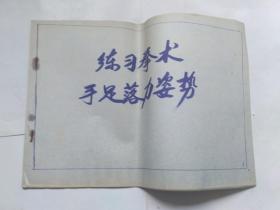 练习拳术
手足落力姿势